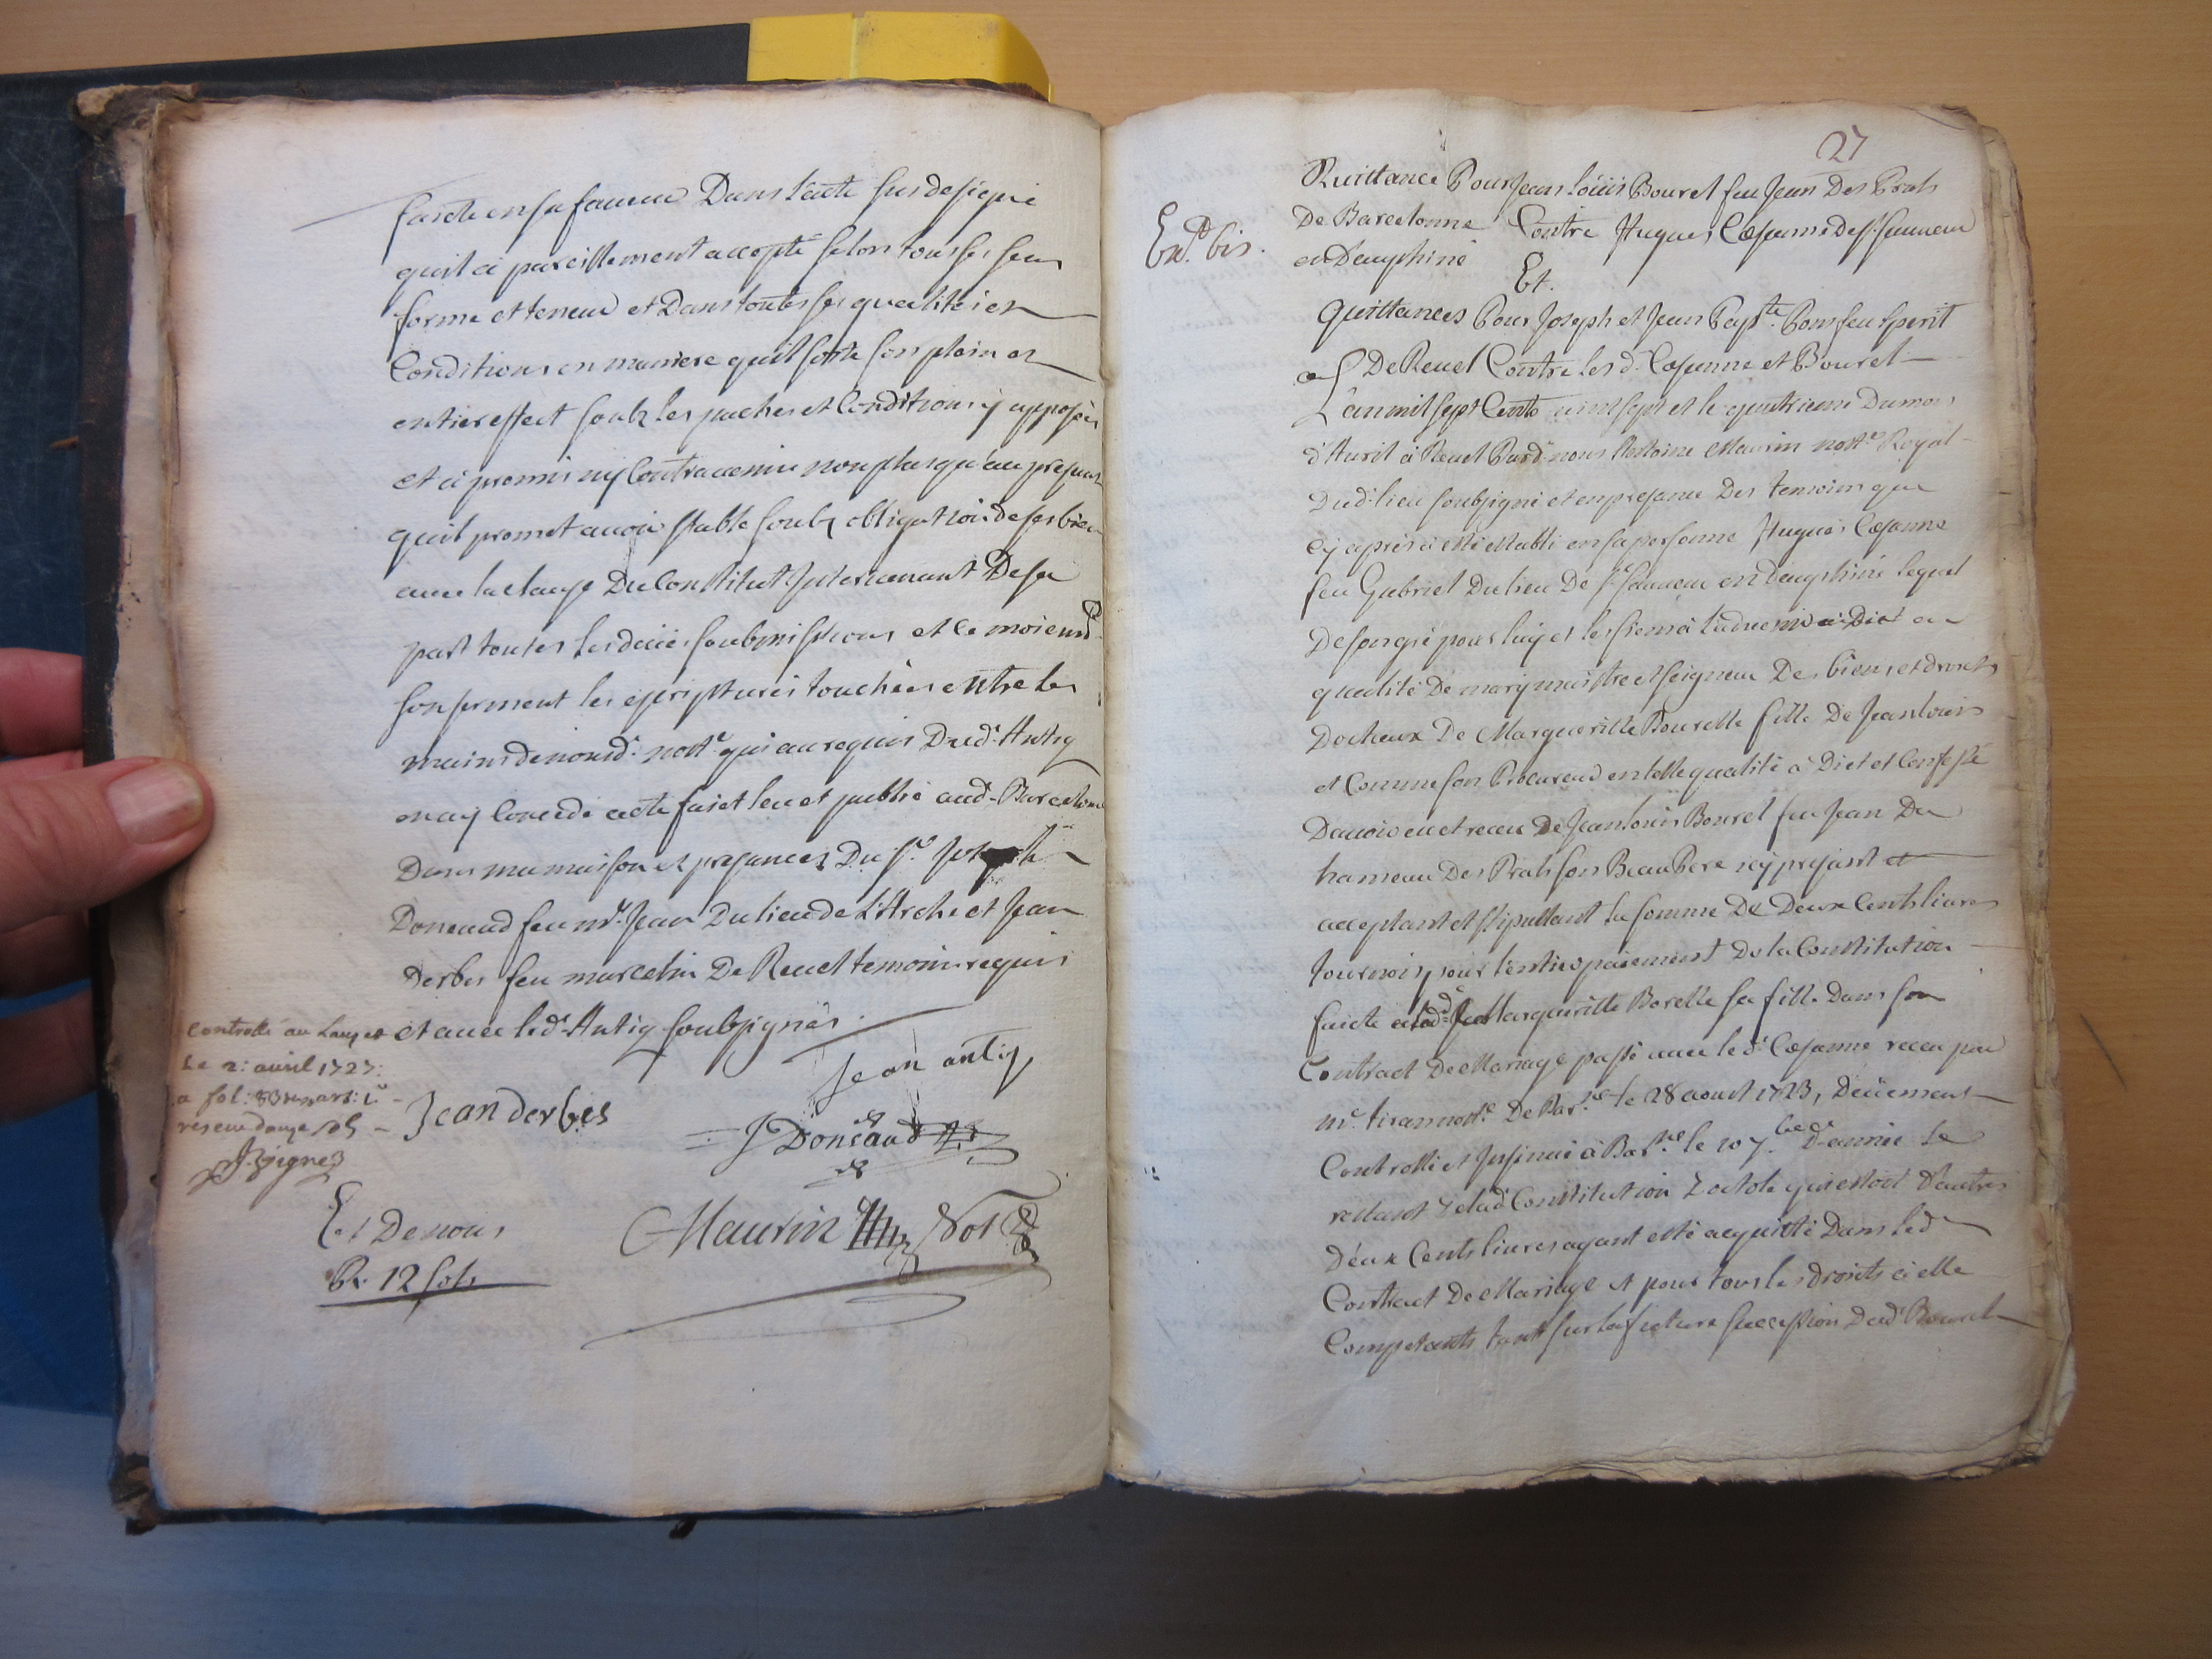 faicte en sa faveur Dans l'acte sus designé
qu'il a pareillement accepté selon tous ses sens
forme et teneur et Dans toutes ses qualités et
Conditions en maniere quil sorte son plain et
entier effect soubz les paches et Conditions y apposées
et a promis ny Contravenir non plus qu'au present
quil promet avoir stable soubz obligation de ses biens
avec la clause Du Constitut Intervenant De sa
part toutes les deües soubmissions et ce moient
son serment les escriptures touchées entre les
mains de nousd. nott.e qui au requis Dud. Antiq
en ay Concede acte faict leu et publié aud. Barcelonne
Dans ma maison et presances Du S.r Joseph
Doneaud feu m.e Jean Du lieu de L'Arche et Jean
Derbes feu marcelin De Revel temoins requis
et avec led. Antiq soubsignés.
Controllé au Lauzet
Le 2: avril 1727:
a fol: 83 art: 1.r
receu douze sols
Jean antiq
Jean derbes
J Doneaud
Et De nous
Maurin Not
R. 12 sols
27
Quittance Pour Jean Loüis Bouret feu Jean Des Prats
De Barcelonne Contre Hugues Cæsanne de S. Sauveur
en Dauphiné
Ex.d bis.
Et.
Quittances Pour Joseph et Jean Bap.te Pons feu Sperit
De Revel Contre les d. Cæsanne et Bouret
L'an mil sept Cents vint sept et le quatrieme Du mois
d'Avril à Revel Pard. nous Antoine Maurin nott.e Royal
Dud. lieu soubsigné et en presance Des temoins que
cy apres a esté establi en sa personne Hugues Cæsanne
feu Gabriel Du lieu De S. Sauveur en Dauphiné lequel
De son gré pour luy et les siens à l'advenir a Dit en
qualité De mary maistre et seigneur Des biens et droits
Dotheux De Margueritte Bourelle fille De Jean Louis
et Comme son Procureur en telle qualité à Dict et Confessé
D'avoir eu et receu De Jean Louis Bouret feu Jean Du
hameau Des Prats son Beau Pere icy presant et
acceptant et stipullant La somme De Deux Cents livres
Tournois pour l'entier paiement De la Constitution
faicte a lad. Marguerite Borelle sa fille Dans son
Contract De Mariage passé avec led. Cæsanne receu par
m.e tiran nott.e De Bar.ne le 28 aoust 1723, Deüement
Controllé et Insinué à Bar.ne le 10 7.bre D. année Le
restant De lad. Constitution Dotale qui estoit D'autres
Deux Cents livres ayant esté acquitté Dans led
Contract De Mariage et pour tous les droits à elle
Competants tant sur la future succession Dud. Bouret